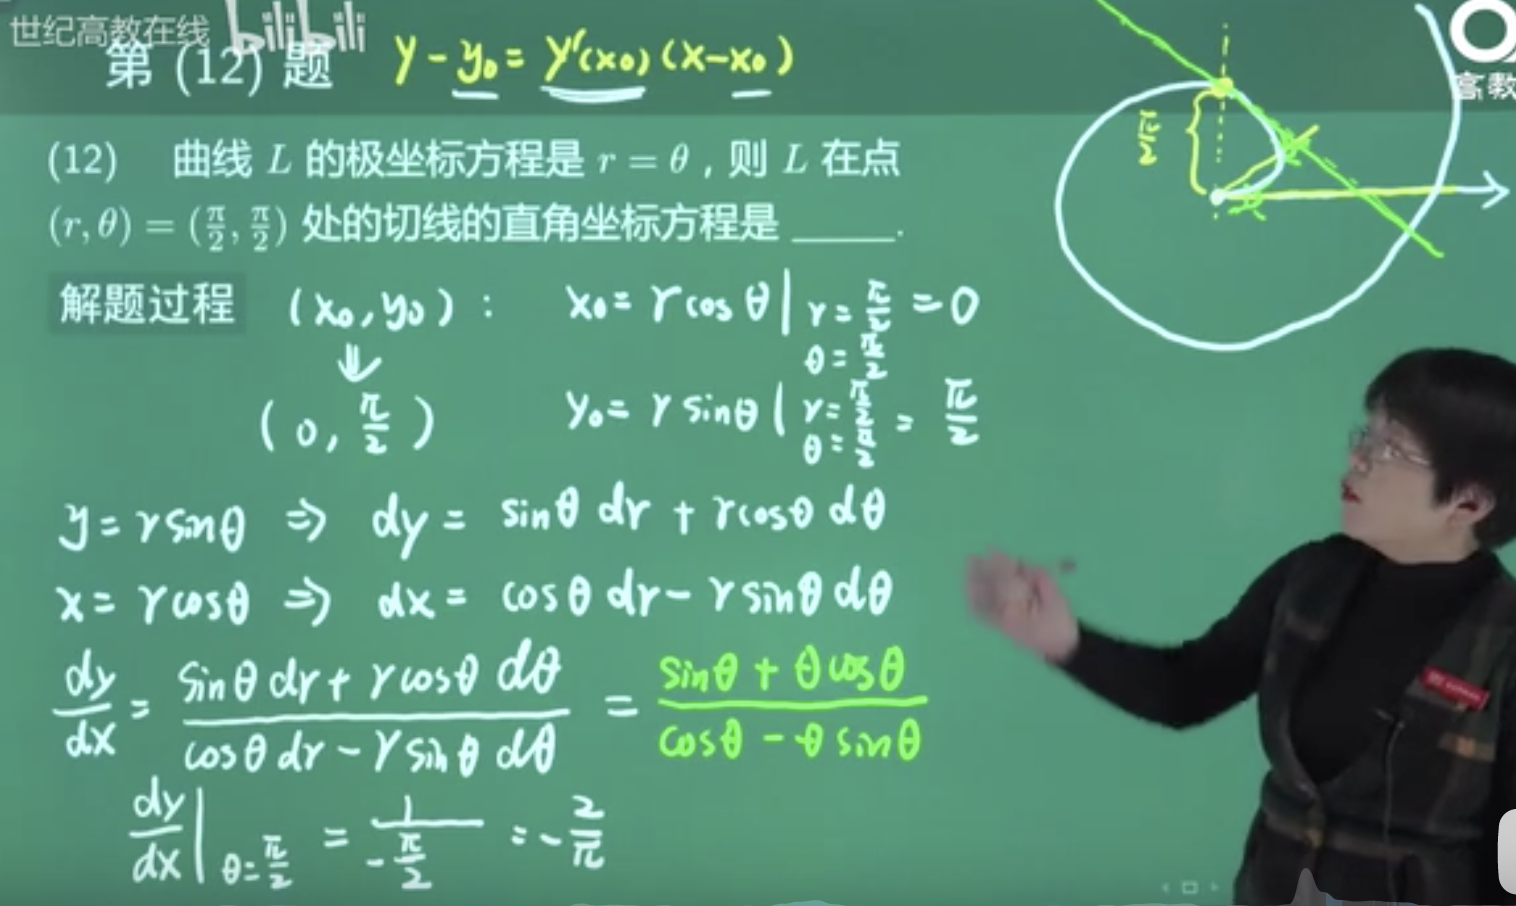 世纪高教在线 bilibili
第 (12) 题
y - y₀ = y'(x₀) (x - x₀)
高教
(12) 曲线 L 的极坐标方程是 r = θ , 则 L 在点
(r, θ) = (π/2, π/2) 处的切线的直角坐标方程是 _____.
π/2
解题过程
(x₀, y₀) : x₀ = r cos θ | r = π/2 θ = π/2 = 0
⇓
(0, π/2) y₀ = r sinθ | r = π/2 θ = π/2 = π/2
y = r sinθ ⇒ dy = sinθ dr + r cosθ dθ
x = r cosθ ⇒ dx = cosθ dr - r sinθ dθ
dy/dx = (sinθ dr + r cosθ dθ)/(cosθ dr - r sinθ dθ) = (sinθ + θ cosθ)/(cosθ - θ sinθ)
dy/dx | θ = π/2 = 1/(-π/2) = - 2/π